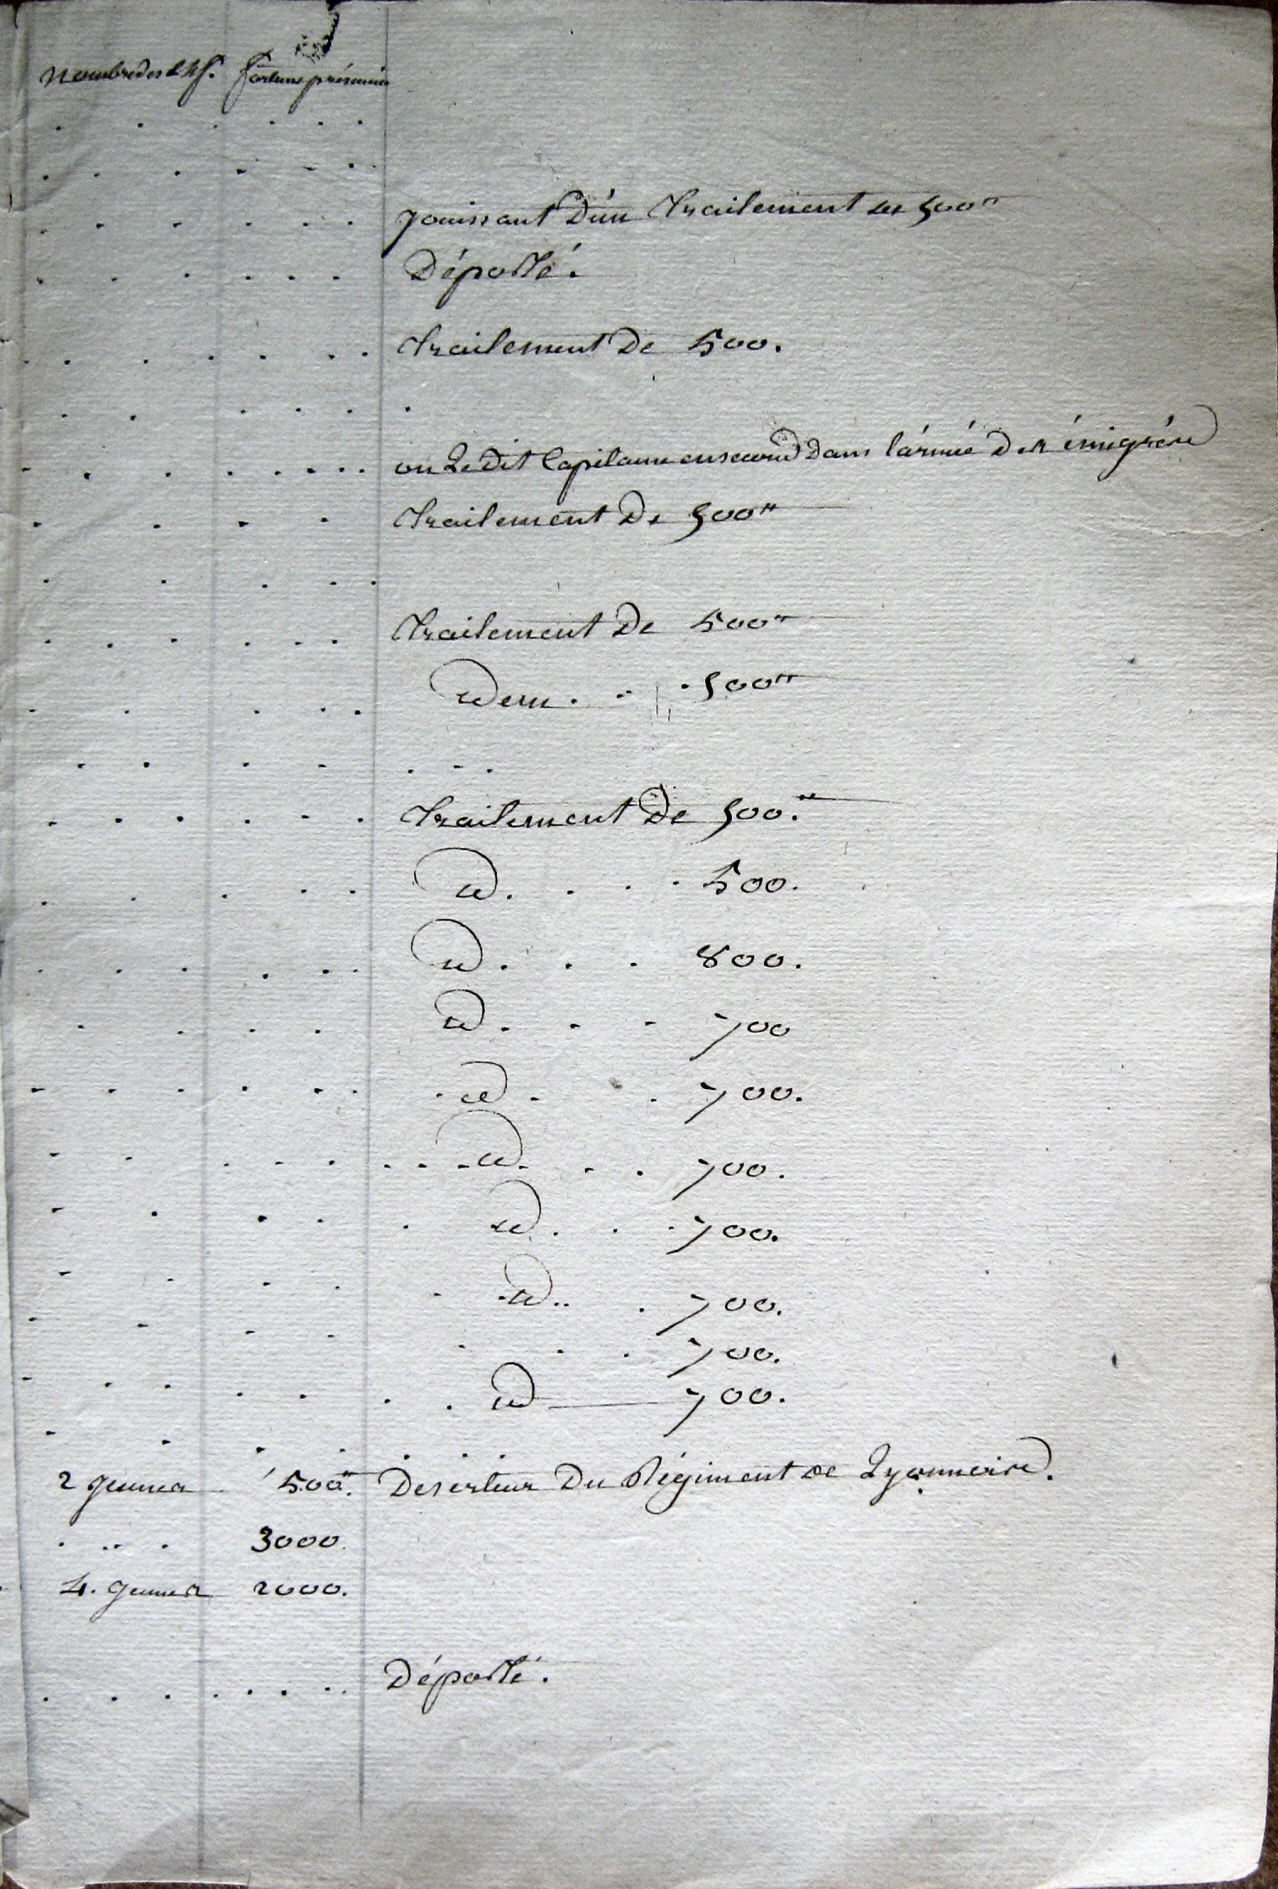 nombre des enf. fortune présumée
jouissant d'un traitement de 500"
Déporté.
traitement de 500.
on le dit Capitaine en second dans l'armée des émigrés
traitement de 500"
traitement de 500"
idem . . . 500"
traitement de 500."
id. . . . 500.
id. . . . 800.
id. . . 700
id. . 700.
id. . . 700.
id. . . 700.
id.. . 700.
. . . 700.
id 700.
2 jeunes 500". Deserteur du Régiment de Lyonnoire.
. .. . 3000.
4. jeunes 2000.
Déporté.